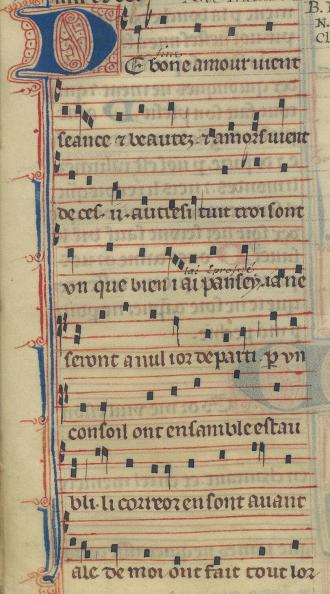 De bone amour vient
fine
seance & beautez. & amors vient
de ces .ii. autresi tuit troi sont
un que bien i ai pansey. ia ne
seront a nul ior departi. p un
consoil ont ensamble estau
bli. li correor en sont auant
ale. de moi ont fait tout lor